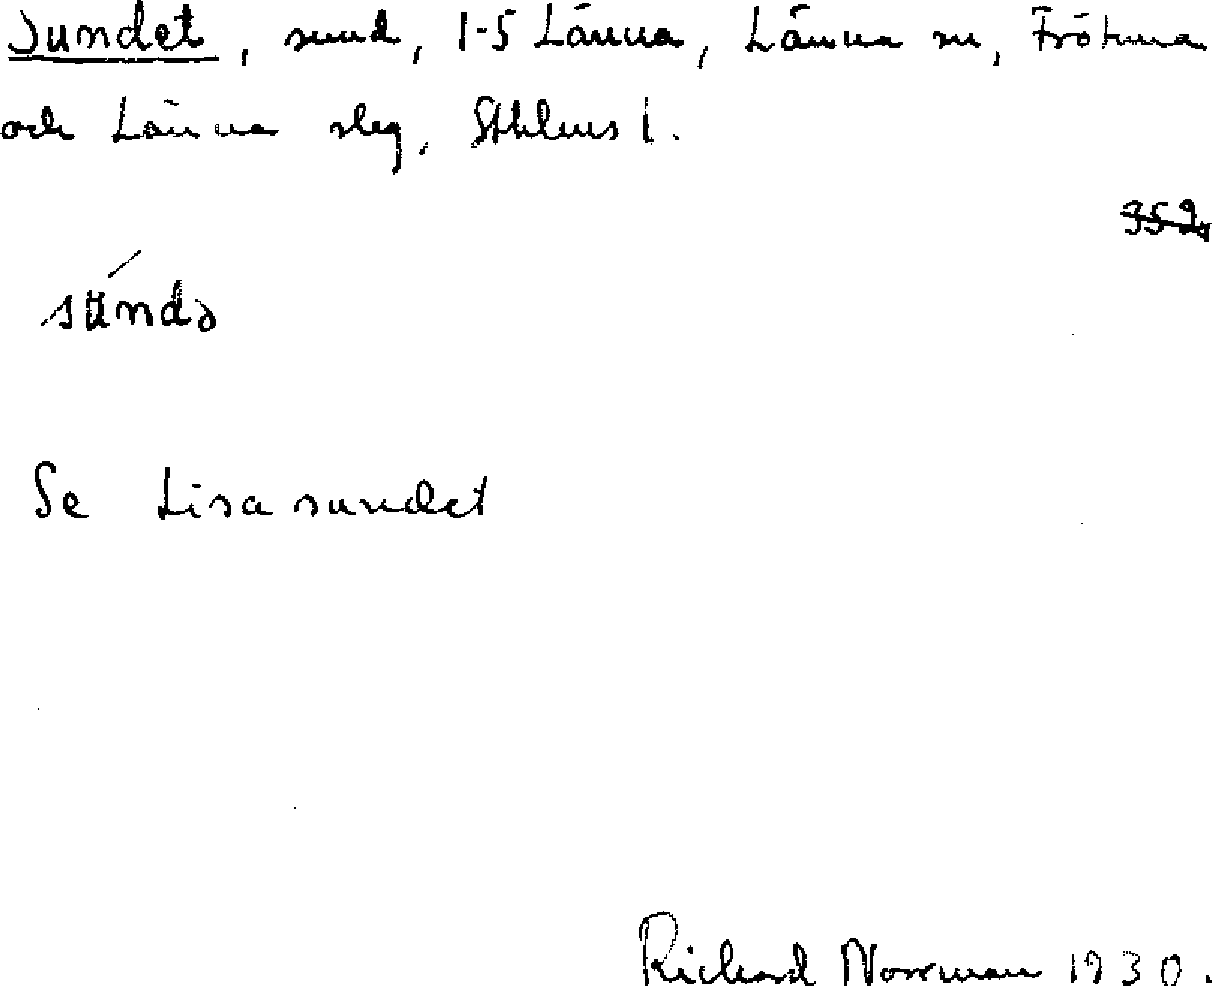 Sundet, sund, 1-5 Länna, Länna sn, Frötuna
och Länna slg, Sthlms l.
352
súndə
Se Lisasundet
Richard Norrman 1930.